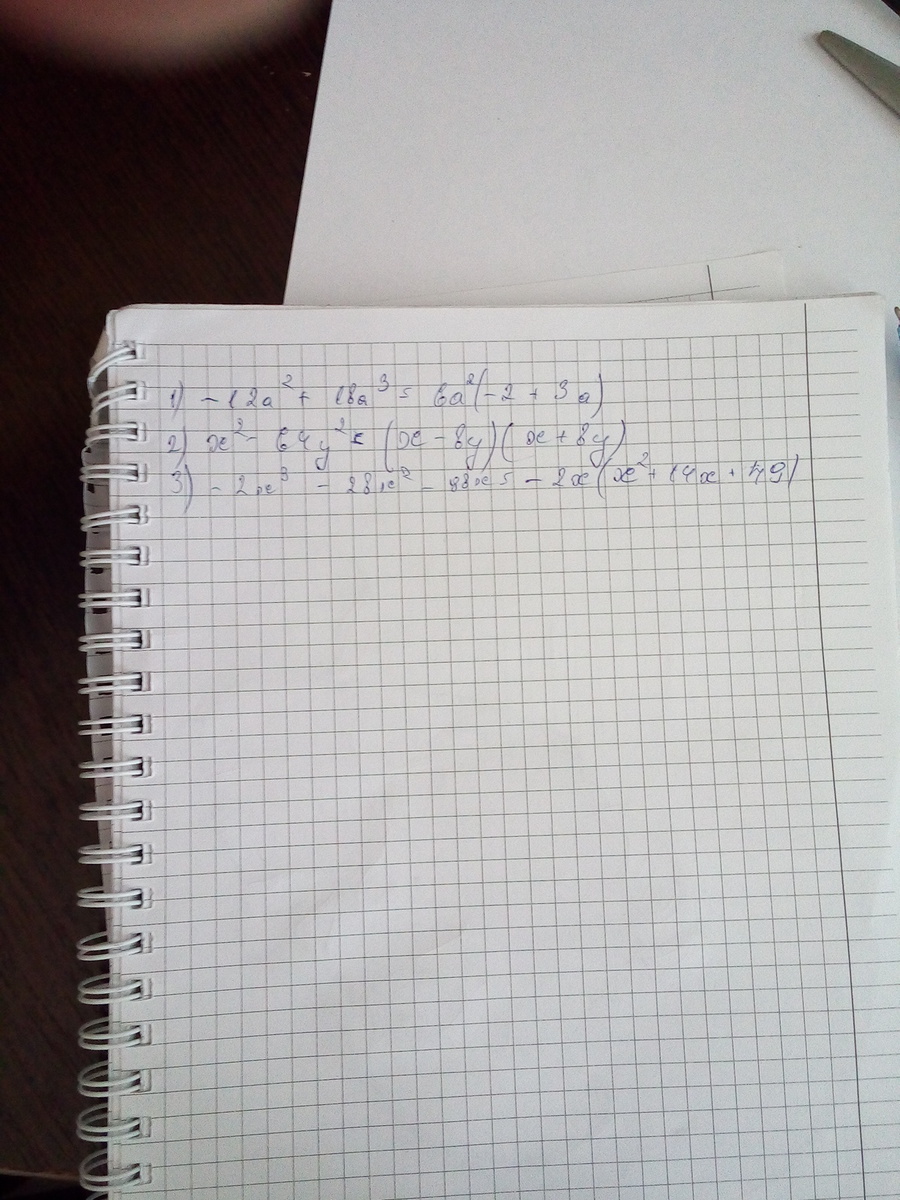 1) -12a² + 18a³ = 6a²(-2 + 3a)
2) x² - 64y² = (x - 8y)(x + 8y)
3) -2x³ - 28x² - 98x = -2x(x² + 14x + 49)